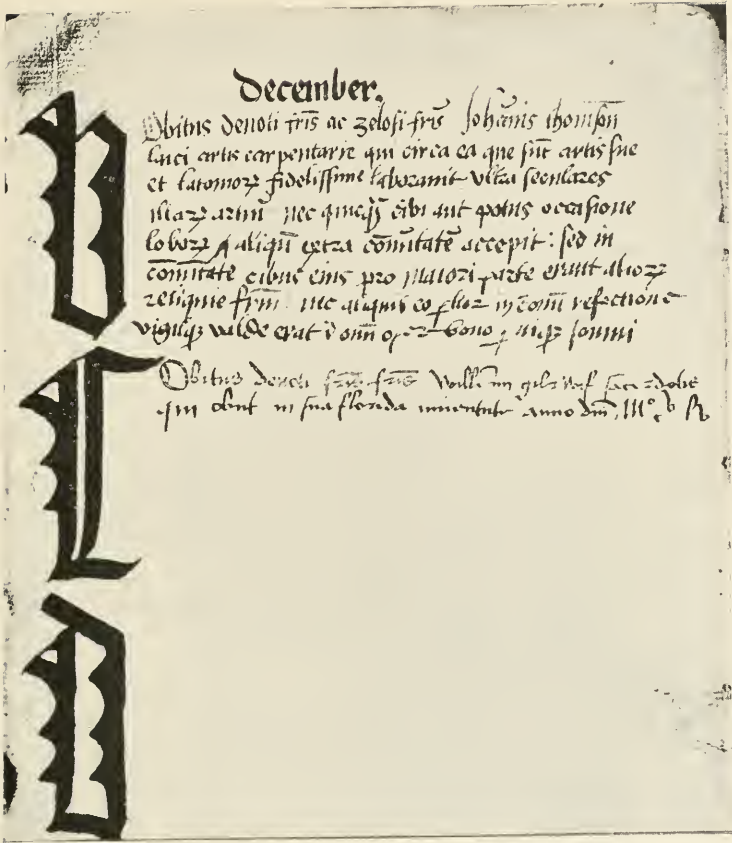 December.
Obitus devoti fr̄is ac zelosi fr̄is Joh̄anis thomson
laici artis carpentarie qui circa ea que sūt artis sue
et latomoꝝ fidelissime laboravit ultra seculares
illaꝝ artiū nec quicq̄ cibi aut potus occasione
laboꝝ aliqn̄ extra cōmitatē accepit : sed in
cōmitate cibus eius pro maiori parte erant alioꝝ
reliquie fr̄m nec aliquis refectione
vigilqꝫ valde erat bono
Obitus devoti fr̄is fr̄is sacerdotis
qui obiit in sua florida iuventute anno dn̄i Mº vᶜ
b
c
d